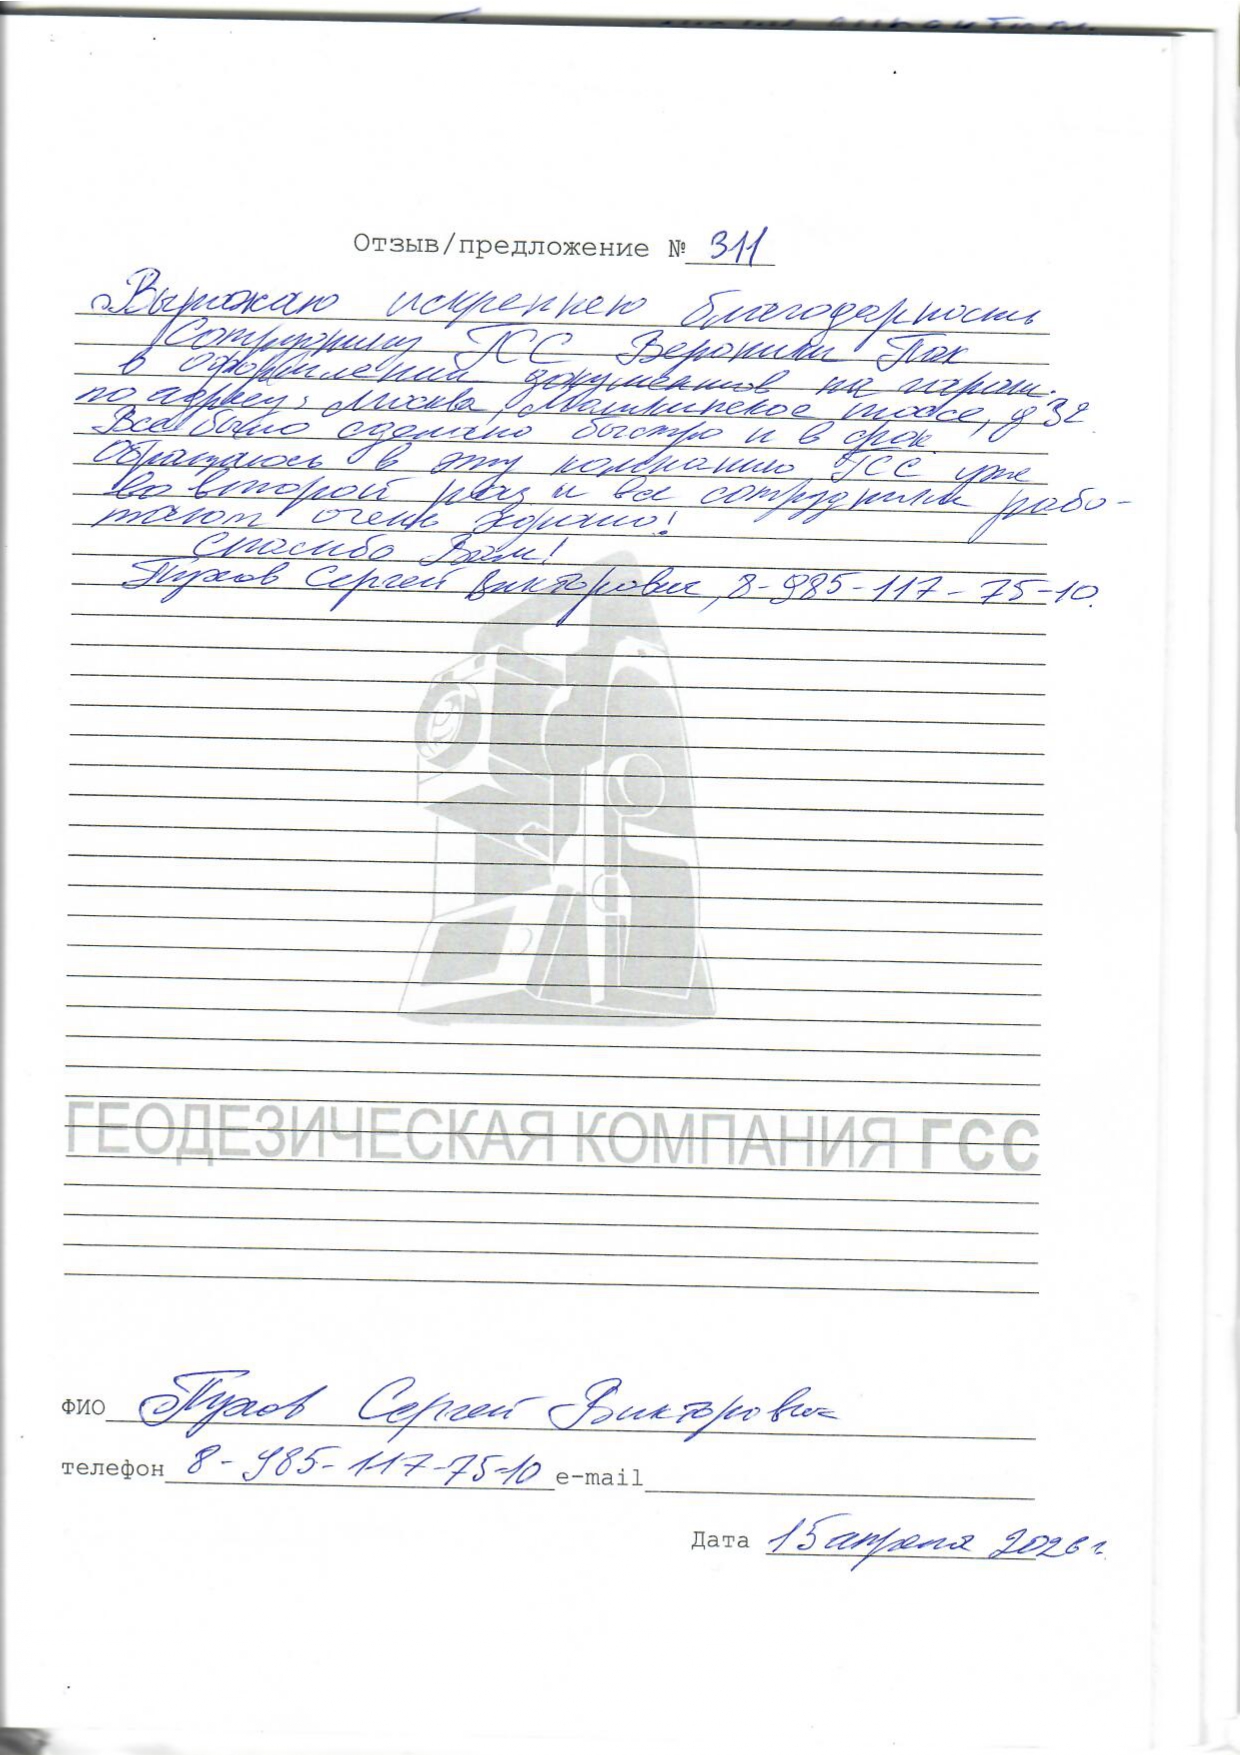 Отзыв/предложение № 311
Выражаю искреннею благодарность
Сотруднику ГСС Вероники Пак
в оформлении документов на
по адресу: Москва, шоссе, д 32
Все было сделано быстро и в срок.
Обращаюсь в эту компанию ГСС уже
во второй раз и все сотрудники рабо-
тают очень хорошо!
Спасибо Вам!
Пухов Сергей Викторович, 8-985-117-75-10.
ГЕОДЕЗИЧЕСКАЯ КОМПАНИЯ ГСС
ФИО Пухов Сергей Викторович
телефон 8-985-117-75-10 e-mail
Дата 15 апреля 2026 г.